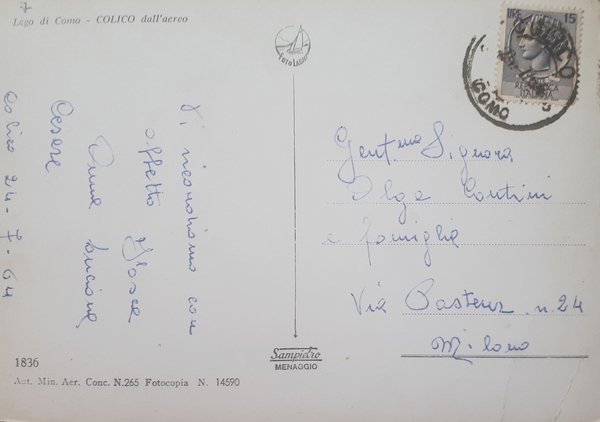 Lago di Como - COLICO dall'aereo
FOTO LAGO
Vi ricordiamo con
affetto
Anna Luciana
Cesare
Colico 24-7-64
1836
Aut. Min. Aer. Conc. N.265 Fotocopia N. 14590
Sampietro
MENAGGIO
LIRE 15
COMO
Gent.ma Signora
Olga Contini
e famiglia
Via Pasteur n. 24
Milano